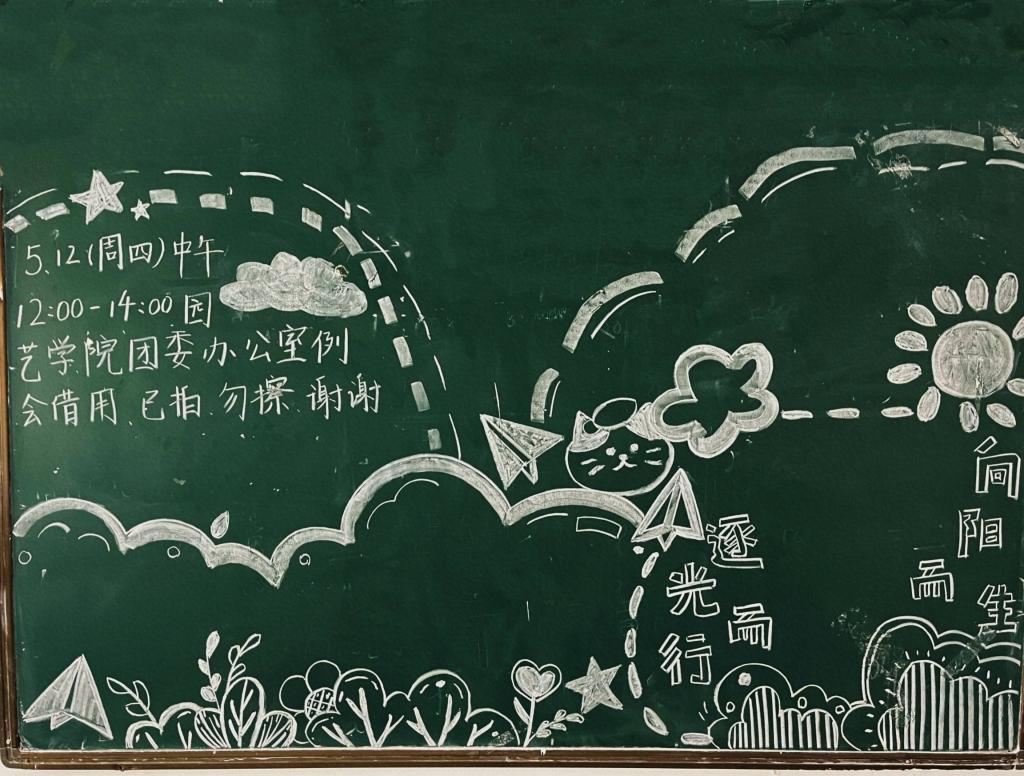 5.12(周四)中午
12:00-14:00 园
艺学院团委办公室例
会借用.已拍.勿擦.谢谢
逐
光而
行
向
阳
而生